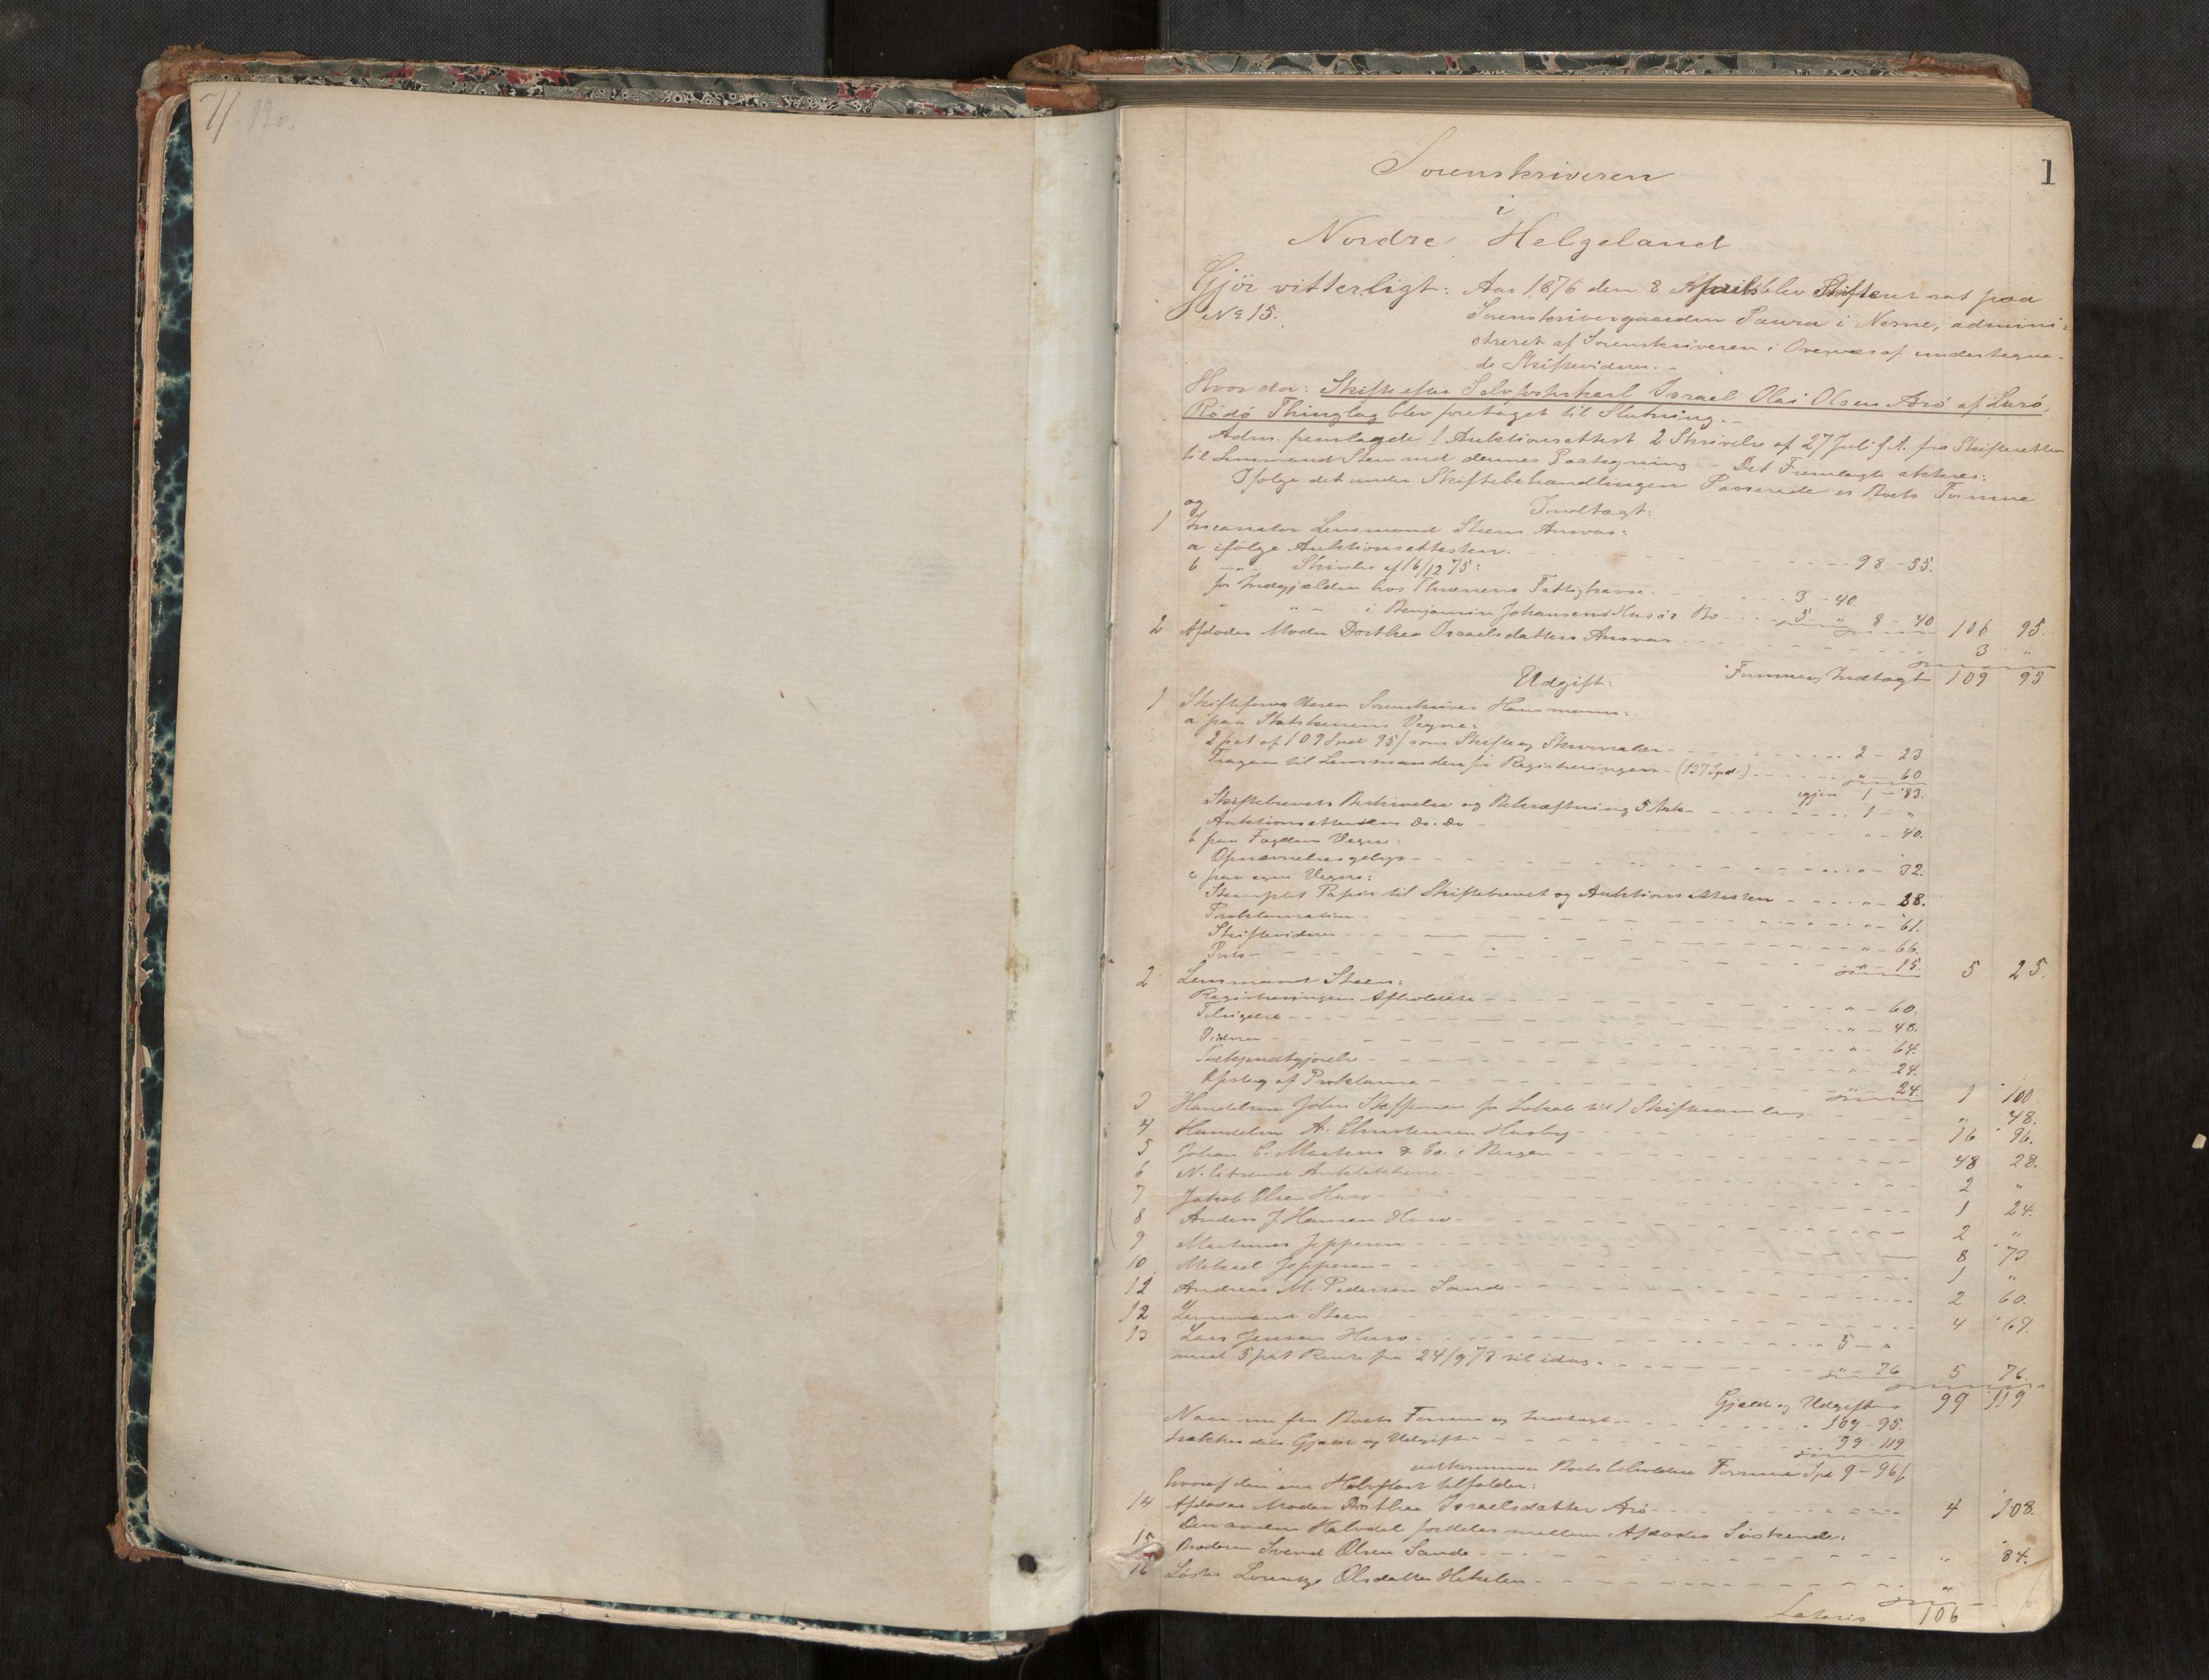 1
Sorenskriveren
i
Nordre Helgeland
Gjör vitterligt: Aar 1876 den 8 April blev Skifteret sat paa
No 15. Sorenskrivergaarden Saura i Nesne, admini-
streret af Sorenskriveren i Overvær af undertegne-
de Skiftevidner. -
Hvor da: Skifte efter Selvfosterkarl Israel Olai Olsen Arö af Lurö,
Rödö Thinglag blev foretaget til Slutning. -
Adm. fremlagde 1 Auktionsattest 2 Skrivelse af 27 Juli f. A. fra Skifteretten
til Lensmand Steen med dennes Paategning - Det Fremlagte akteres:
Ifölge det under Skiftebehandlingen Passerede er Boets Formue
og Indtægt:
1 Incassator Lensmand Steens Ansvar:
a ifölge Auktionsattesten. 98 - 55.
b -"- Skrivelse af 16/12 75:
for Indgjælden hos Thrænens Fattigkasse 3 - 40.
" " - i Benjamin Johansens Husös Bo 5 " 8 - 40 106 95.
2 Afdödes Moder Dorthea Israelsdatters Ansvar 3 "
Formue og Indtægt 109 95
Udgift:
1 Skifteforvalteren Sorenskriver Hansmann:
a paa Statskassens Vegne:
2 pct af 109 Spd 95 s som Skifte og Skriversalær 2 - 23
Fragaar til Lensmanden for Registreringen (137 Spd.) " - 60
igjen 1 - 83.
Skiftebrevets Beskrivelse og Bekræftning 5 Ark 1 - "
Auktionsattestens Do. Do " - 40.
b paa Fogdens Vegne:
Opnævnelsesgebyr " - 32.
c paa egne Vegne:
Stemplet Papir til Skiftebrevet og Auktionsattesten " - 28.
Proklamation " - 61.
Skiftevidner " - 66.
Porto " - 15. 5 25.
2 Lensmand Steen:
Registreringens Afholdelse " - 60.
Tilsigelse " - 48.
Vidner " - 64.
Bekjendtgjörelse " 24.
Opslag af Proklama " 24. 1 100
3 Handelsm John Steffensen for Lokale til 1 Skiftesamling " 48.
4 Handelsm A. Christensen Husby 16 96.
5 Johan C. Martens & Co. i Bergen 48 28.
6 N. 2 "
7 Jakob Olsen Husö 1 24.
8 Anders J Hansen Husö 2 "
9 Martinus Jeppesen 8 73.
10 Mikael Jeppesen 1 "
12 Andreas M. Pedersen Sande 2 60.
12 Lensmand Steen 4 69.
13 Lars Jensen Husö 5 - "
med 5 pct Rente fra 24/9 73 til idag. " - 76 5 76.
Gjæld og Udgift 99 119
Naar nu fra Boets Formue og Indtægt 109 - 95.
trækkes dets Gjæld og Udgift 99 - 119
udkommer Boets beholdne Formue Spd 9 - 96 s
hvoraf den ene Halvpart tilfalder:
14 Afdödes Moder Dorthea Israelsdatter Arö 4 108.
Den anden Halvdel fordeles mellem Afdödes Söskende:
15 Broderen Svend Olsen Sande " 84.
16 Söster Lorentze Olsdatter "
Lateris 106